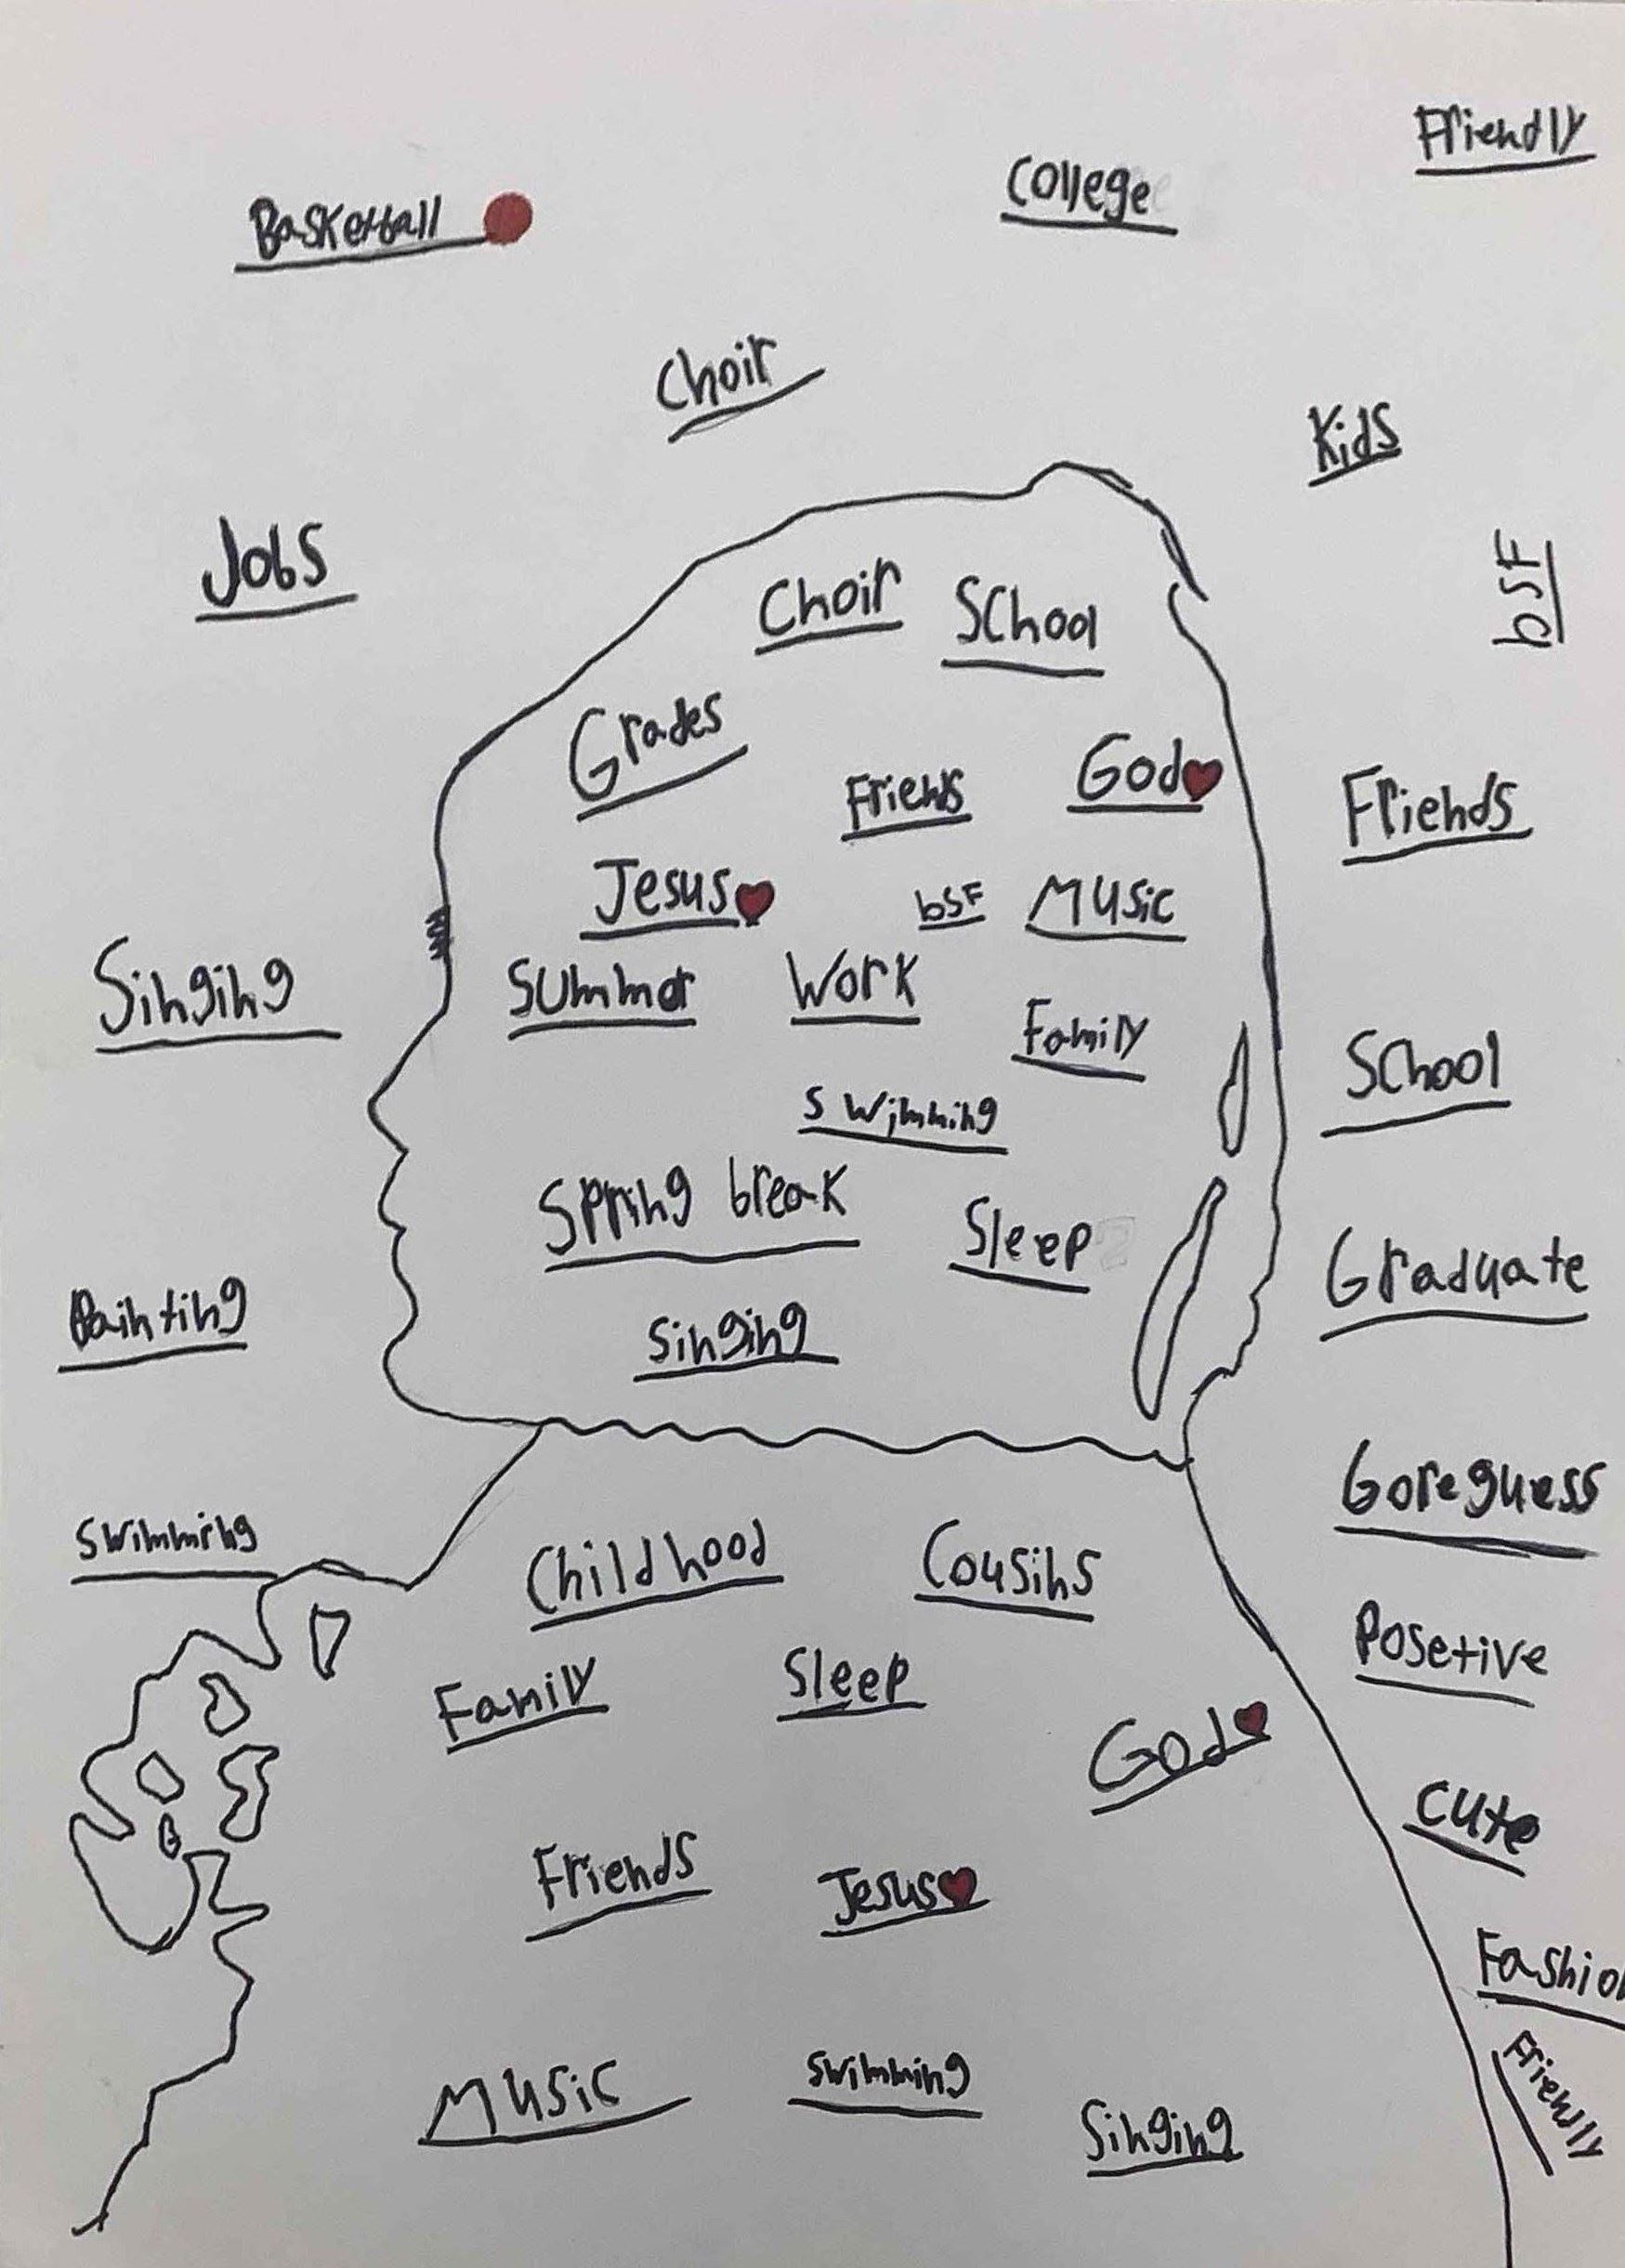 Friendly
College
Basketball
Choir
Kids
Jobs
bsf
Choir School
Grades
God
Friens
Friends
Jesus
bsf Music
Singing
Summer Work
Family
School
Swimming
Spring break
Sleep
Graduate
Painting
Singing
Goreguess
Swimming
Childhood Cousins
Posetive
Family Sleep
God
Cute
Friends Jesus
Fashion
Friendly
Music Swimming
Singing